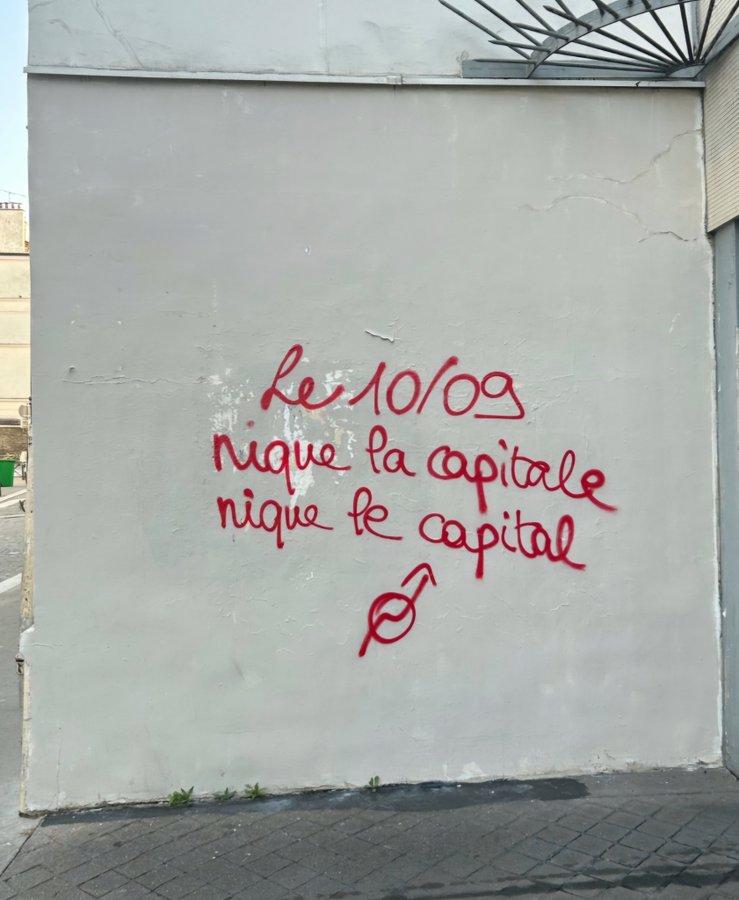 Le 10/09
nique la capitale
nique le capital